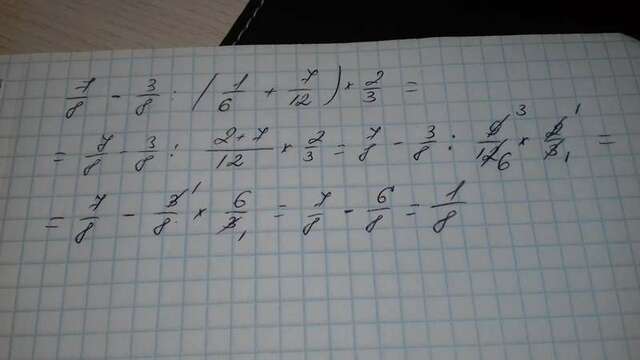 7/8 - 3/8 : (1/6 + 7/12) × 2/3 =
= 7/8 - 3/8 : 2+7/12 × 2/3 = 7/8 - 3/8 : 9³/12₆ × 2¹/3₁ =
= 7/8 - 3¹/8 × 6/3₁ = 7/8 - 6/8 = 1/8